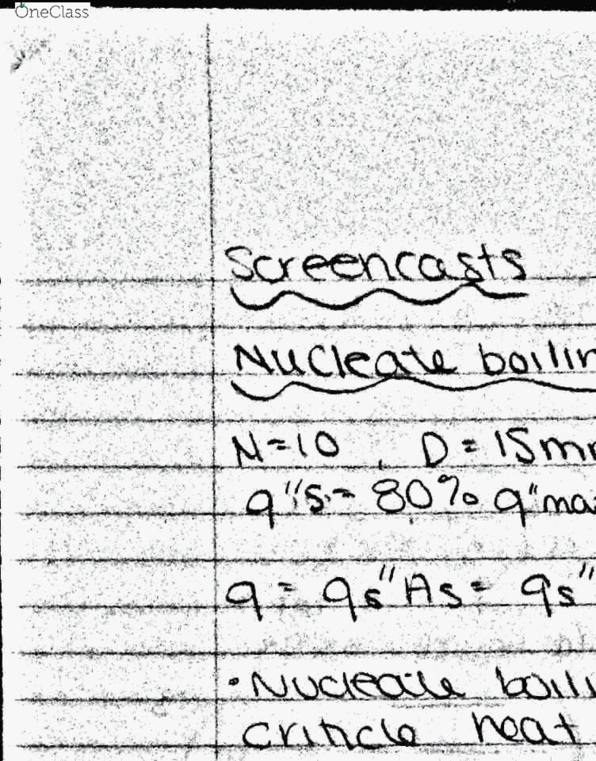 OneClass
Screencasts
Nucleate boilin
N=10, D=15mm
q"s = 80% q"max
q = qs"As = qs"
•Nucleate boili
criticle heat